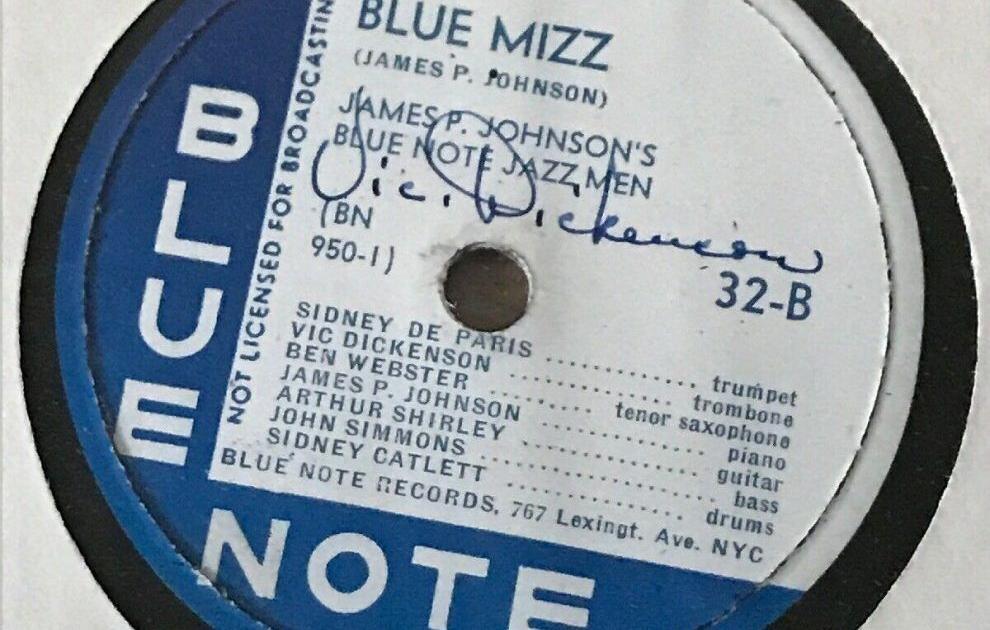 BLUE MIZZ
(JAMES P. JOHNSON)
JAMES P. JOHNSON'S
BLUE NOTE JAZZ MEN
Vic. Dickenson
(BN
950-1)
32-B
SIDNEY DE PARIS .......... trumpet
VIC DICKENSON .......... trombone
BEN WEBSTER .......... tenor saxophone
JAMES P. JOHNSON .......... piano
ARTHUR SHIRLEY .......... guitar
JOHN SIMMONS .......... bass
SIDNEY CATLETT .......... drums
BLUE NOTE RECORDS, 767 Lexingt. Ave. NYC
NOT LICENSED FOR BROADCASTIN
BLUE
NOTE